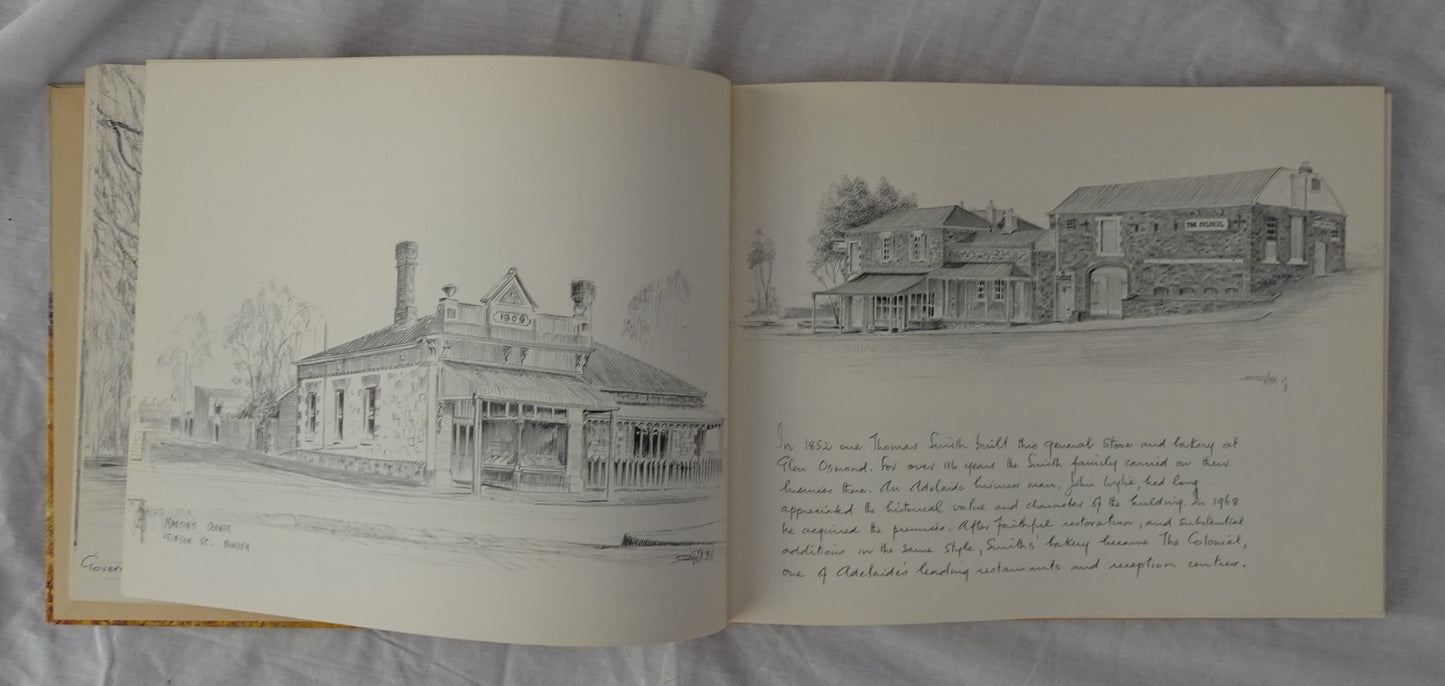 Govern
1909
MARTIN'S CORNER
GIBSON ST. BOWDEN
THE COLONIAL
In 1852 one Thomas Smith built this general store and bakery at
Glen Osmond. For over 116 years the Smith family carried on their
business there. An Adelaide business man, John Wylie, had long
appreciated the historical value and character of the building. In 1968
he acquired the premises. After faithful restoration, and substantial
additions in the same style, Smiths' bakery became The Colonial,
one of Adelaide's leading restaurants and reception centres.